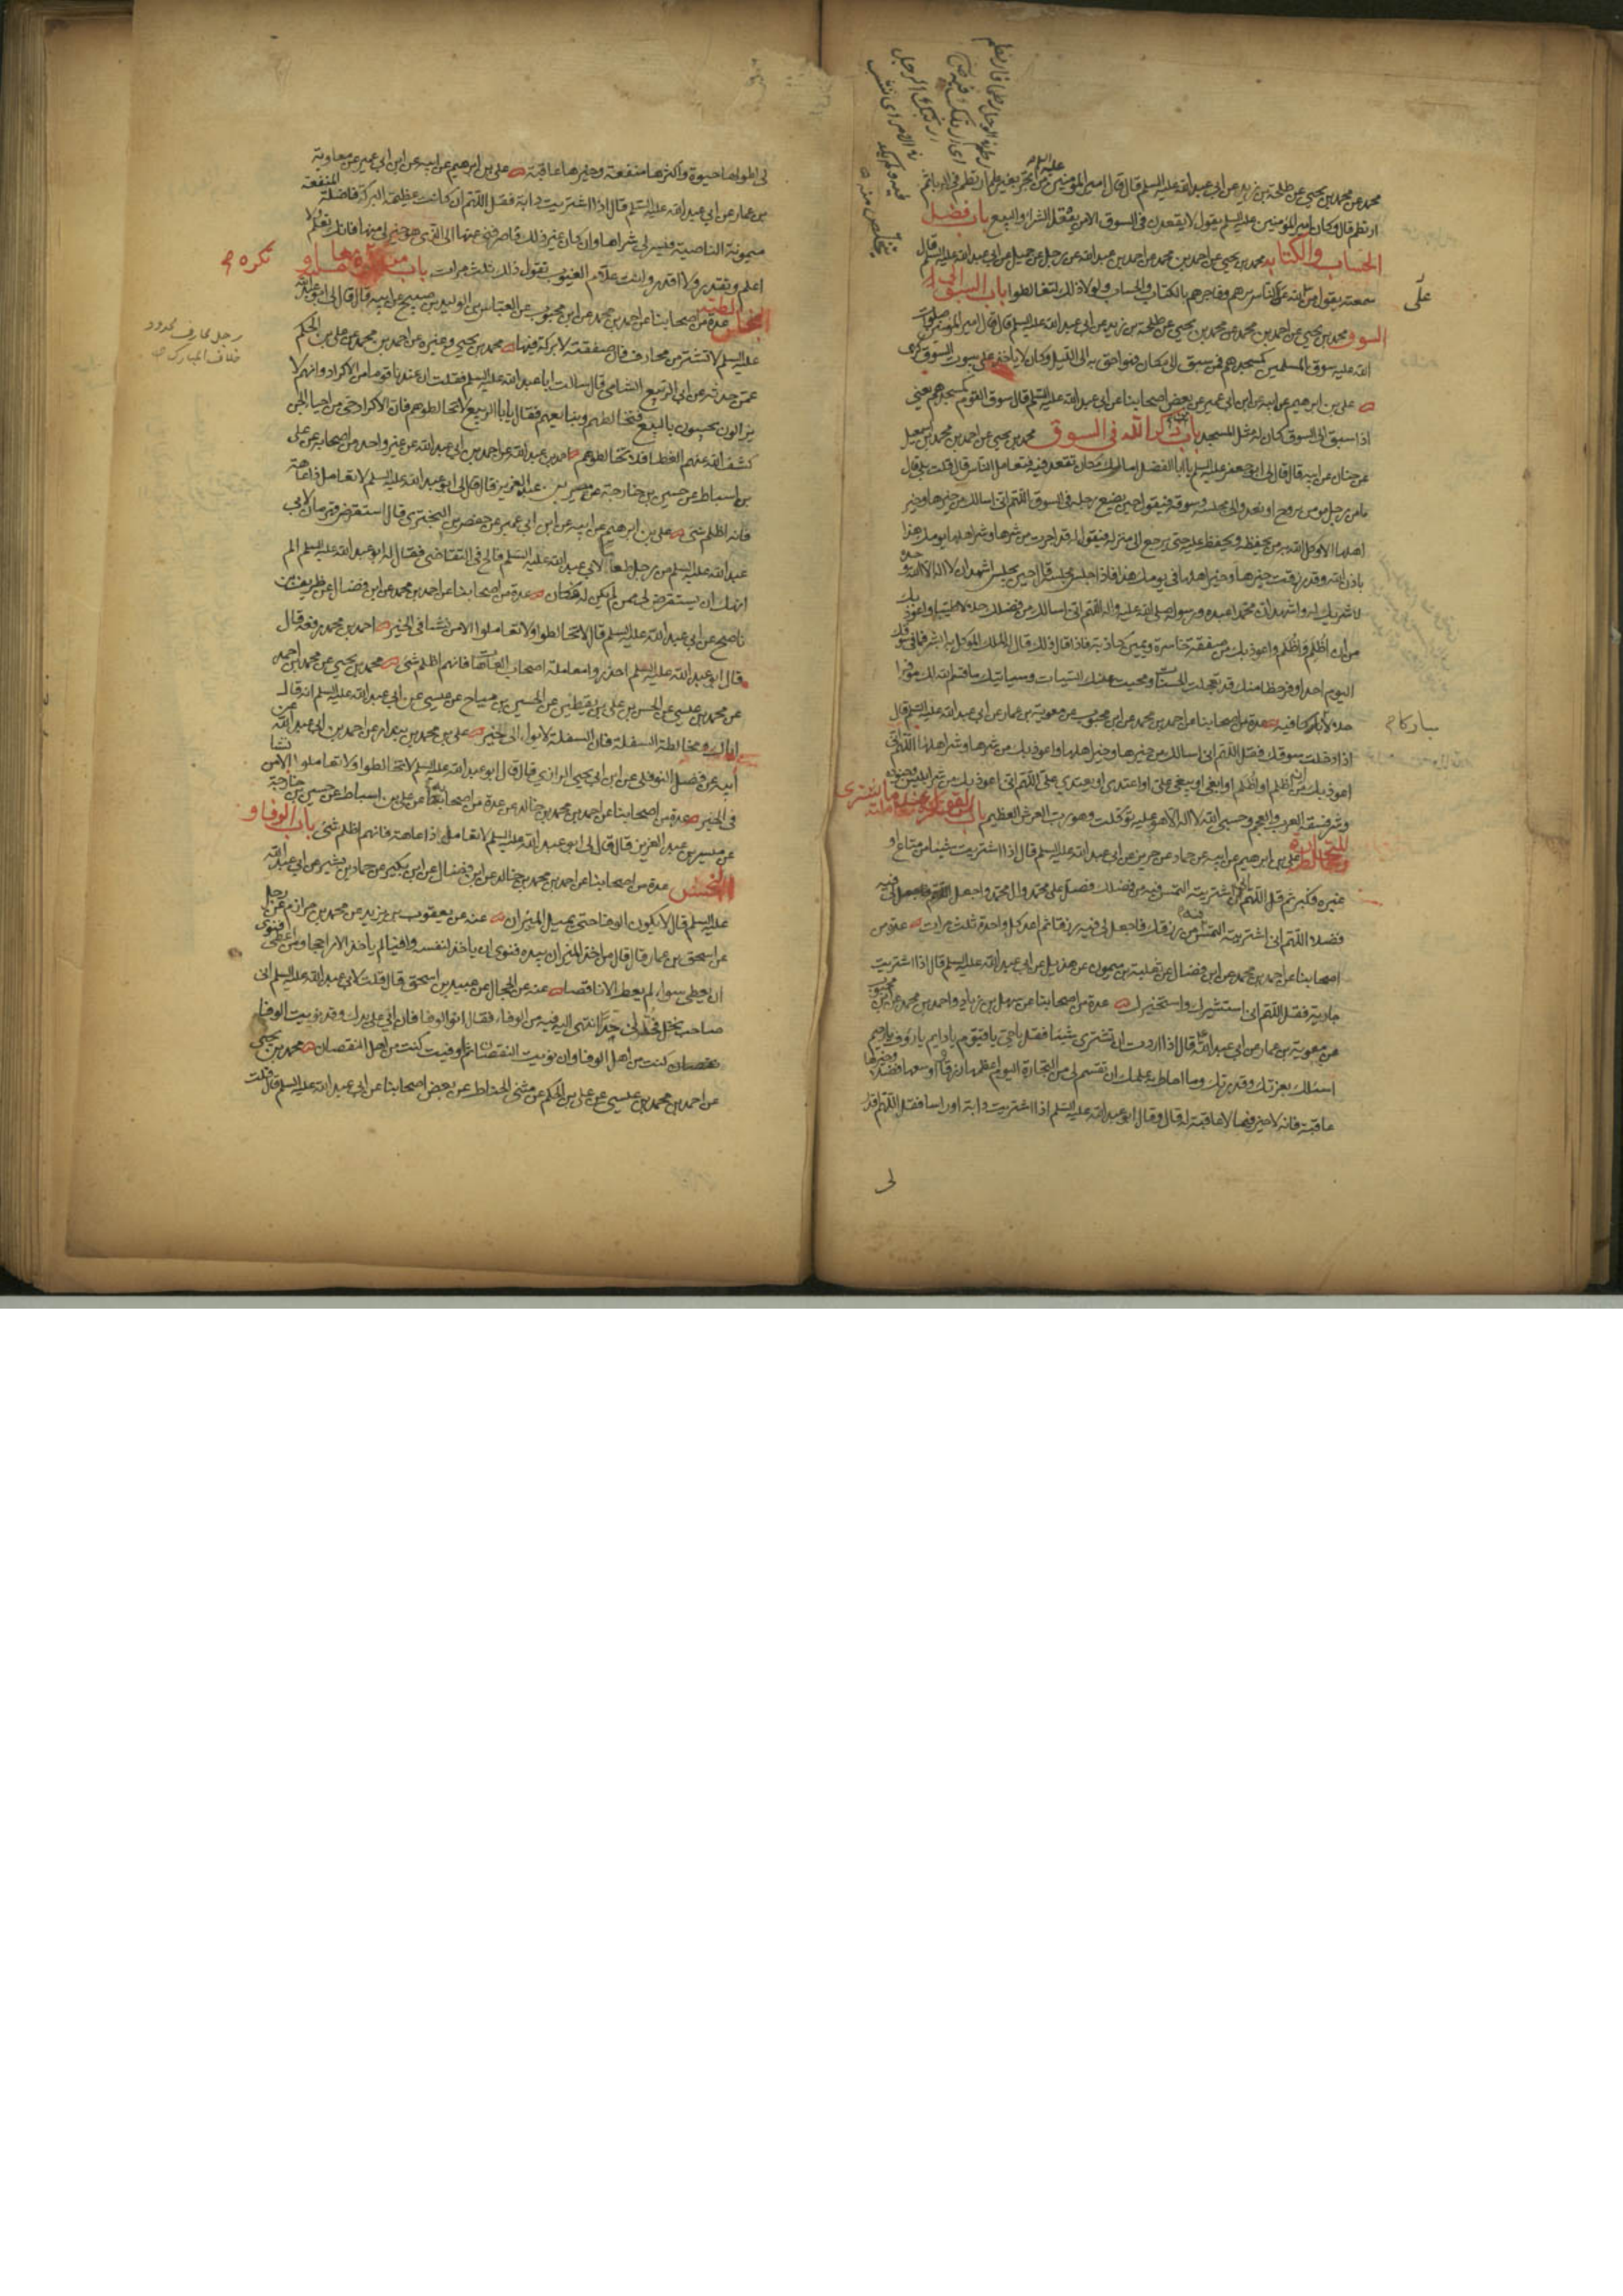 محمد عن محمد بن يحيى عن طلحة بن زيد عن ابي عبد الله عليه السلم قال قال امير المؤمنين عليه السلام من اتجر بغير علم ارتطم في الربا ثم
ارتطم قال وكان امير المؤمنين عليه السلم يقول لا يقعدن في السوق الا من يعقل الشرا والبيع باب فضل
الحساب والكتابه محمد بن يحيى عن احمد بن محمد عن احمد بن ابي عبد الله عن رجل عن جميل عن ابي عبد الله عليه السلم قال
سمعته يقول من الله عز وجل على الناس برهم وفاجرهم بالكتاب والحساب ولولا ذلك لتغالطوا باب السبق الى
السوق محمد بن يحيى عن احمد بن محمد عن محمد بن يحيى عن طلحة بن زيد عن ابي عبد الله عليه السلم قال قال امير المؤمنين صلوات
الله عليه سوق المسلمين كمسجدهم فمن سبق الى مكان فهو احق به الى الليل وكان لا ياخذ على بيوت السوق كرى
علي بن ابرهيم عن ابيه عن ابن ابي عمير عن بعض اصحابنا عن ابي عبد الله عليه السلم قال سوق القوم كمسجدهم يعني
اذا سبق الى السوق كان له مثل المسجد باب ذكر الله في السوق محمد بن يحيى عن احمد بن محمد بن اسمعيل
عن حنان عن ابيه قال قال لي ابو جعفر عليه السلم يا ابا الفضل اما لك مكان تقعد فيه فتعامل الناس قال قلت بلى قال
ما من رجل مؤمن يروح او يغدو الى مجلسه وسوقه فيقول حين يضع رجله في السوق اللهم اني اسالك من خيرها وخير
اهلها الا وكل الله به من يحفظه ويحفظ عليه حتى يرجع الى منزله فيقول له قد اجرت من شرها وشر اهلها يومك هذا
باذن الله وقد رزقت خيرها وخير اهلها في يومك هذا فاذا جلس مجلسه قال حين يجلس اشهد ان لا اله الا الله وحده
لا شريك له واشهد ان محمدا عبده ورسوله صلى الله عليه واله اللهم اني اسالك من فضلك حلالا طيبا واعوذ بك
من ان اظلم او اظلم واعوذ بك من صفقة خاسرة ويمين كاذبة فاذا قال ذلك قال له الملك الموكل به ابشر فما في سوقك
اليوم احد اوفر حظا منك قد تعجلت الحسنات ومحيت عنك السيئات وسياتيك ما قسم الله لك موفرا
حلالا مباركا فيه عدة من اصحابنا عن احمد بن محمد عن ابن محبوب عن معوية بن عمار عن ابي عبد الله عليه السلم قال
اذا دخلت سوقك فقل اللهم اني اسالك من خيرها وخير اهلها واعوذ بك من شرها وشر اهلها اللهم اني
اعوذ بك من ان اظلم او اظلم او ابغي او يبغى علي او اعتدي او يعتدى علي اللهم اني اعوذ بك من شر ابليس وجنوده
وشر فسقة العرب والعجم وحسبي الله لا اله الا هو عليه توكلت وهو رب العرش العظيم باب القول عند ما يشترى
للتجارة علي بن ابرهيم عن ابيه عن حماد عن حريز عن ابي عبد الله عليه السلم قال اذا اشتريت شيئا من متاع او
غيره فكبر ثم قل اللهم اني اشتريته التمس فيه من فضلك فصل على محمد وال محمد واجعل لي فيه
فضلا اللهم اني اشتريته التمس فيه من رزقك فاجعل لي فيه رزقا ثم اعد كل واحدة ثلث مرات عدة من
اصحابنا عن احمد بن محمد عن ابن فضال عن ثعلبة بن ميمون عن هذيل عن ابي عبد الله عليه السلم قال اذا اشتريت
جارية فقل اللهم اني استشيرك واستخيرك عدة من اصحابنا عن سهل بن زياد واحمد بن محمد عن ابن محبوب
عن معوية بن عمار عن ابي عبد الله قال اذا اردت ان تشتري شيئا فقل يا حي يا قيوم يا دايم يا رؤف يا رحيم
اسئلك بعزتك وقدرتك وما احاط به علمك ان تقسم لي من التجارة اليوم اعظمها رزقا واوسعها فضلا وخيرها
عاقبة فانه لا خير فيما لا عاقبة له قال وقال ابو عبد الله عليه السلم اذا اشتريت دابة او راسا فقل اللهم اقدر
لي
على
مباركا م
لي اطولها حيوة واكثرها منفعة وخيرها عاقبة علي بن ابرهيم عن ابيه عن ابن ابي عمير عن معاوية
بن عمار عن ابي عبد الله عليه السلم قال اذا اشتريت دابة فقل اللهم ان كانت عظيمة البركة فاضلة المنفعة
ميمونة الناصية فيسر لي شراها وان كان غير ذلك فاصرفني عنها الى الذي هو خير لي منها فانك تعلم ولا
اعلم وتقدر ولا اقدر وانت علام الغيوب تقول ذلك ثلث مرات باب من
تكره م
عدة من اصحابنا عن احمد بن محمد عن ابن محبوب عن العباس بن الوليد بن صبيح عن ابيه قال قال لي ابو عبد الله
عليه السلم لا تشتر من محارف فان صفقته لا بركة فيها محمد بن يحيى وغيره عن احمد بن محمد عن علي بن الحكم
عمن حدثه عن ابي الربيع الشامي قال سالت ابا عبد الله عليه السلم فقلت ان عندنا قوما من الاكراد وانهم لا
يزالون يجيبون بالبيع فنخالطهم ونبايعهم فقال يا ابا الربيع لا تخالطوهم فان الاكراد حي من احيا الجن
كشف الله عنهم الغطا فلا تخالطوهم احمد بن عبد الله عن احمد بن ابي عبد الله عن غير واحد من اصحابه عن علي
بن اسباط عن حسين بن خارجة عن ميسر بن عبد العزيز قال قال لي ابو عبد الله عليه السلم لا تعامل ذا عاهة
فانه اظلم شي علي بن ابرهيم عن ابيه عن ابن ابي عمير عن حفص بن البختري قال استقرض قهرمان لابي
عبد الله عليه السلم من رجل طعاما لابي عبد الله عليه السلم فالح في التقاضي فقال له ابو عبد الله عليه السلم الم
انهك ان تستقرض لي ممن لم يكن له فكان عدة من اصحابنا عن احمد بن محمد عن ابن فضال عن ظريف بن
ناصح عن ابي عبد الله عليه السلم قال لا تخالطوا ولا تعاملوا الا من نشا في الخير احمد بن محمد رفعه قال
قال ابو عبد الله عليه السلم احذروا معاملة اصحاب العاهات فانهم اظلم شي محمد بن يحيى عن محمد بن احمد
عن محمد بن عيسى عن الحسن بن علي بن يقطين عن الحسين بن مياح عن عيسى عن ابي عبد الله عليه السلم انه قال
اياك ومخالطة السفلة فان السفلة لا يؤل الى خير علي بن محمد بن بندار عن احمد بن ابي عبد الله عن
ابيه عن فضل النوفلي عن ابن ابي يحيى الرازي قال قال ابو عبد الله عليه السلم لا تخالطوا ولا تعاملوا الا من نشا
في الخير عدة من اصحابنا عن احمد بن محمد بن خالد عن عدة من اصحابنا عن علي بن اسباط عن حسين بن خارجة
عن ميسر بن عبد العزيز قال قال لي ابو عبد الله عليه السلم لا تعامل ذا عاهة فانهم اظلم شي باب الوفا و
البخس عدة من اصحابنا عن احمد بن محمد بن خالد عن ابن فضال عن ابن بكير عن حماد بن بشير عن ابي عبد الله
عليه السلم قال لا يكون الوفا حتى يميل الميزان عنه عن يعقوب بن يزيد عن محمد بن مرازم عن رجل
عن اسحق بن عمار قال قال من اخذ الميزان بيده فنوى ان ياخذ لنفسه وافيا لم ياخذ الا راجحا ومن اعطى فنوى
ان يعطي سواء لم يعط الا ناقصا عنه عن الحجال عن عبيد بن اسحق قال قلت لابي عبد الله عليه السلم اني
صاحب نخل فخبرني بحد انتهي اليه فيه من الوفاء فقال انو الوفا فان اتى على يدك وقد نويت الوفاء
نقصان كنت من اهل الوفا وان نويت النقصان ثم اوفيت كنت من اهل النقصان محمد بن يحيى
عن احمد بن محمد بن عيسى عن علي بن الحكم عن مثنى الحناط عن بعض اصحابنا عن ابي عبد الله عليه السلم قال قلت
رجل محارف محدود
خلاف المبارك